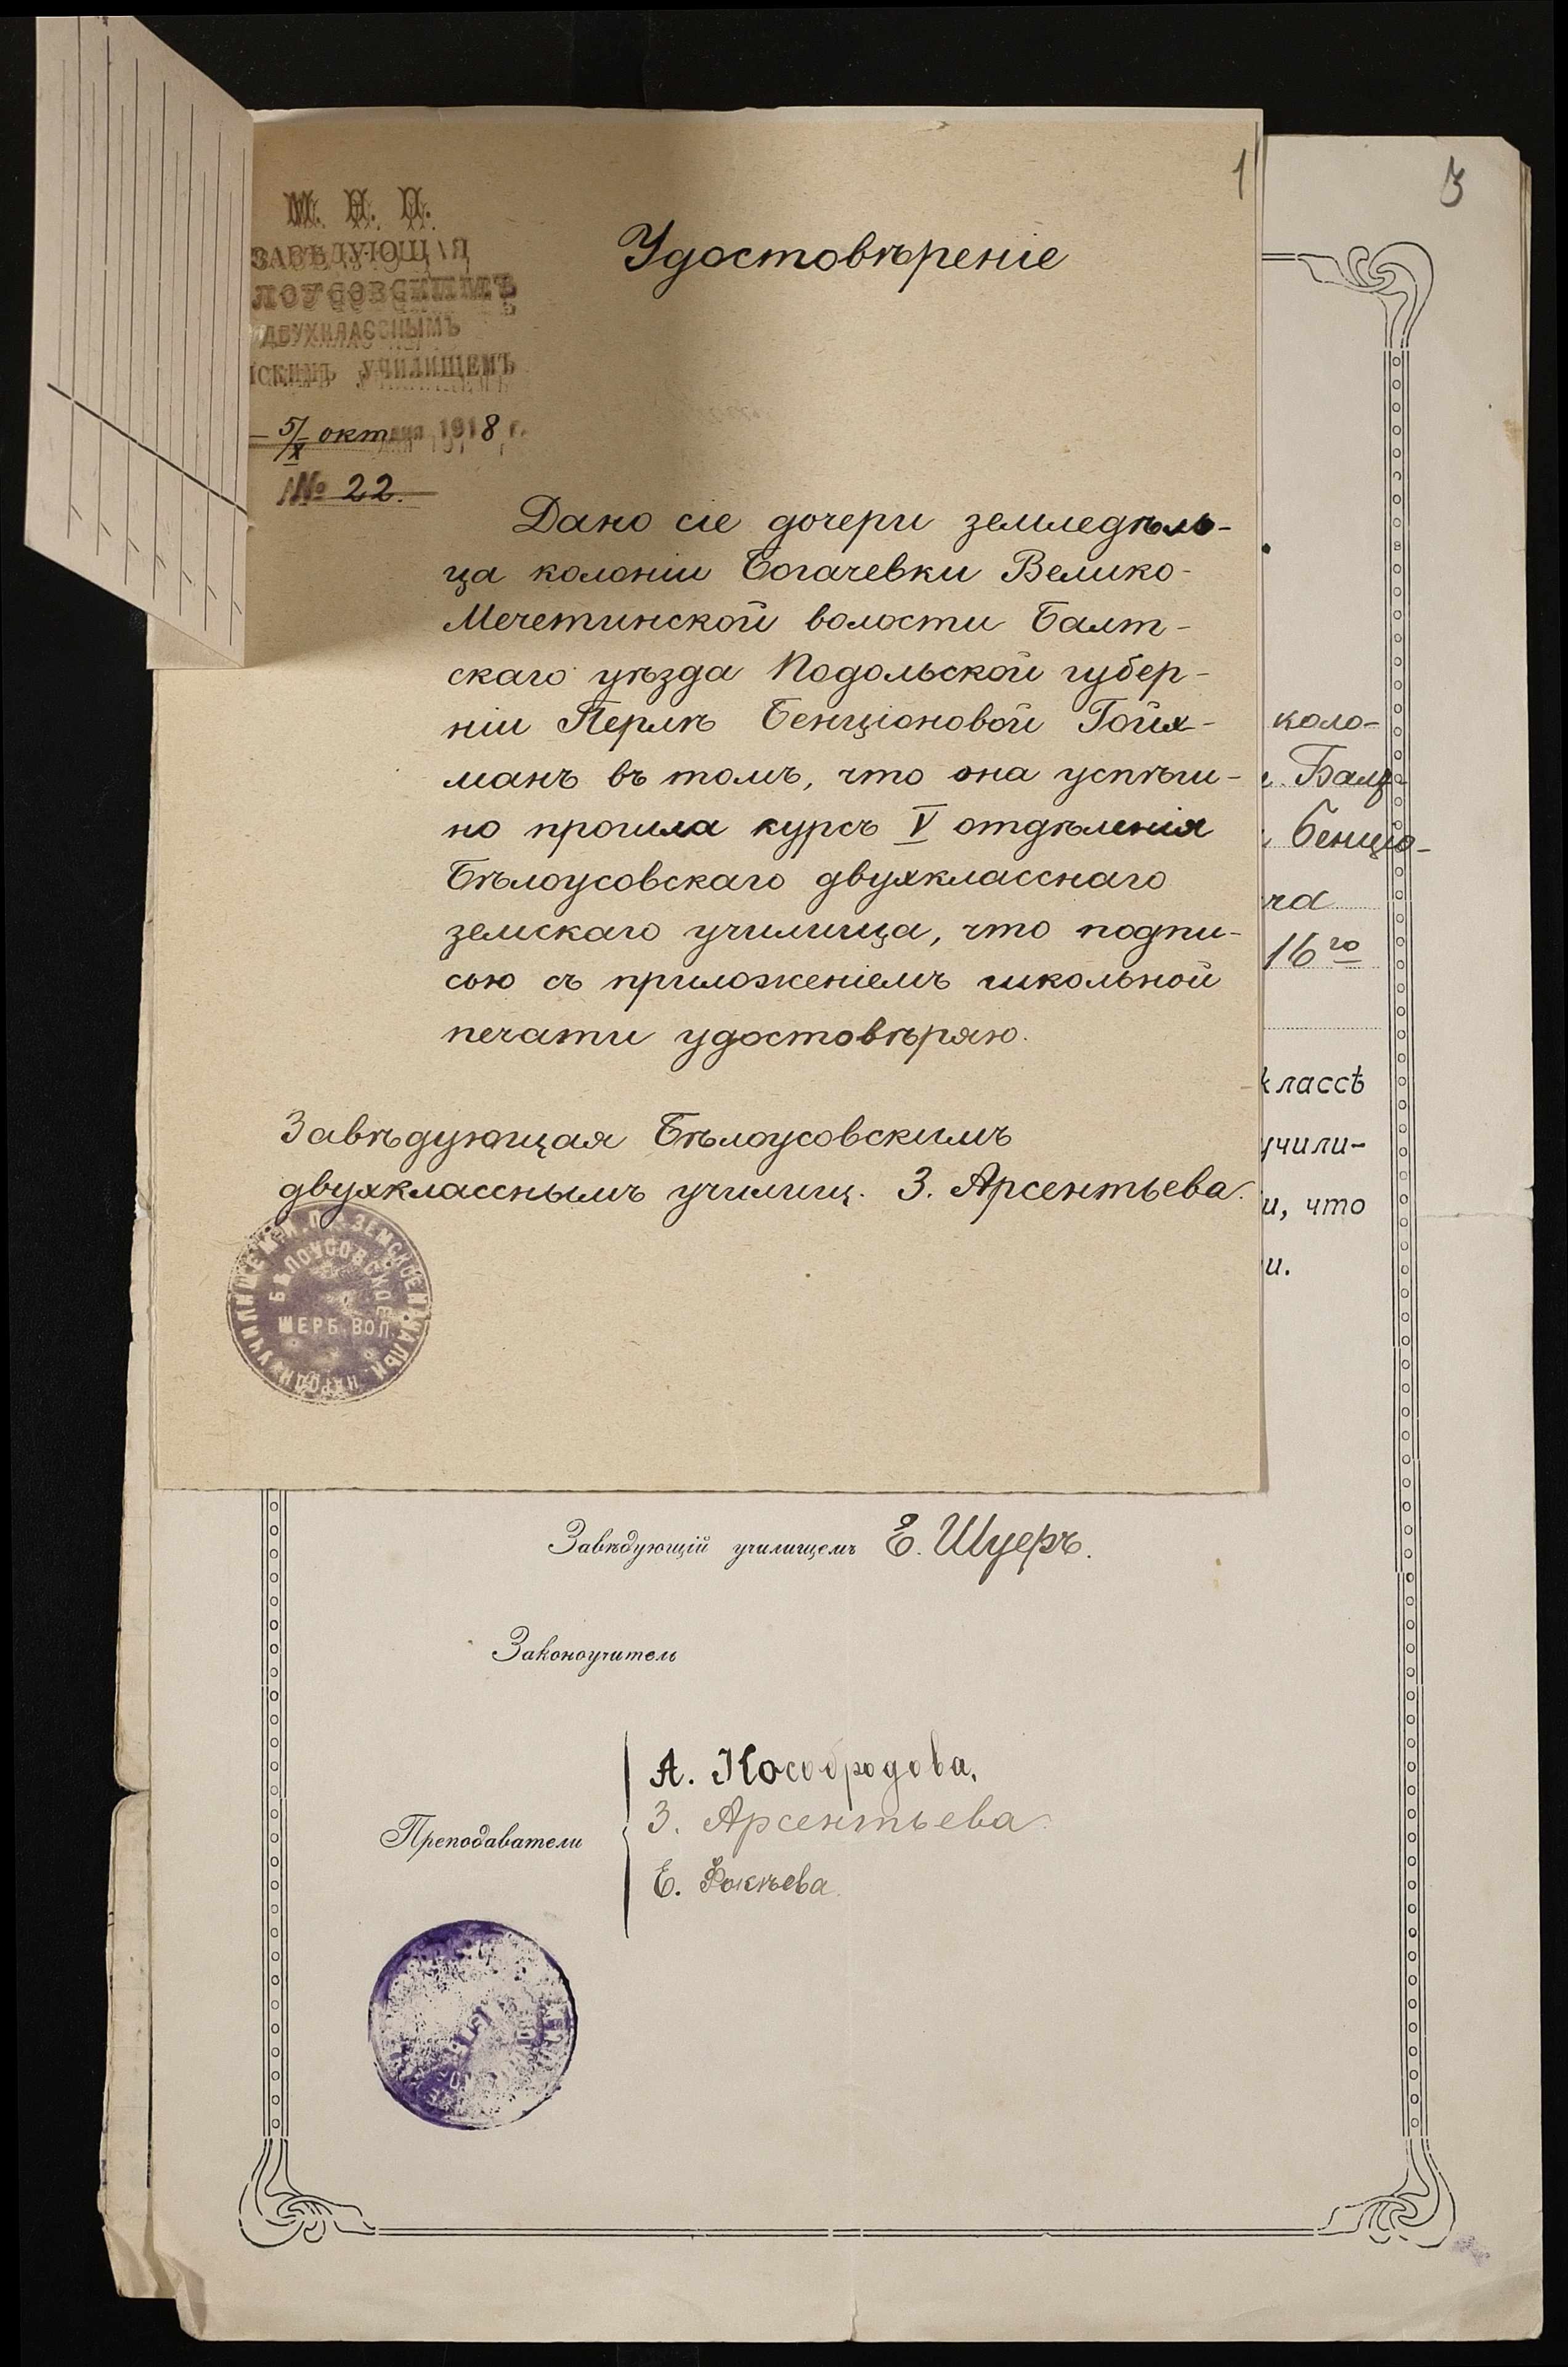 1
М. Н. П.
ЗАВѢДУЮЩАЯ
ЛОУСОВСКИМЪ
ДВУХКЛАССНЫМЪ
СКИМЪ УЧИЛИЩЕМЪ
5/X окт 1918 г.
№ 22.
Удостовѣреніе
Дано сіе дочери земледѣль-
ца колоніи Богачевки Велико-
Мечетинской волости Балт-
скаго уѣзда Подольской губер-
ніи Перлѣ Бенціоновой Гойх-
манъ въ томъ, что она успѣш-
но прошла курсъ V отдѣленія
Бѣлоусовскаго двухкласснаго
земскаго училища, что подпи-
сью съ приложеніемъ школьной
печати удостовѣряю.
Завѣдующая Бѣлоусовскимъ
двухкласснымъ училищ. З. Арсентьева.
М.Н.П. ЗЕМСКОЕ НАЧАЛЬН. НАРОДН. УЧИЛИЩЕ
БѢЛОУСОВСКОЕ
ШЕРБ. ВОЛ.
3
коло-
Балт
Бенціо-
16го
классѣ
учили-
и, что
и.
Завѣдующій училищемъ Е. Шуеръ.
Законоучитель
Преподаватели
А. Кособродова,
З. Арсентьева
Е. Фокѣева